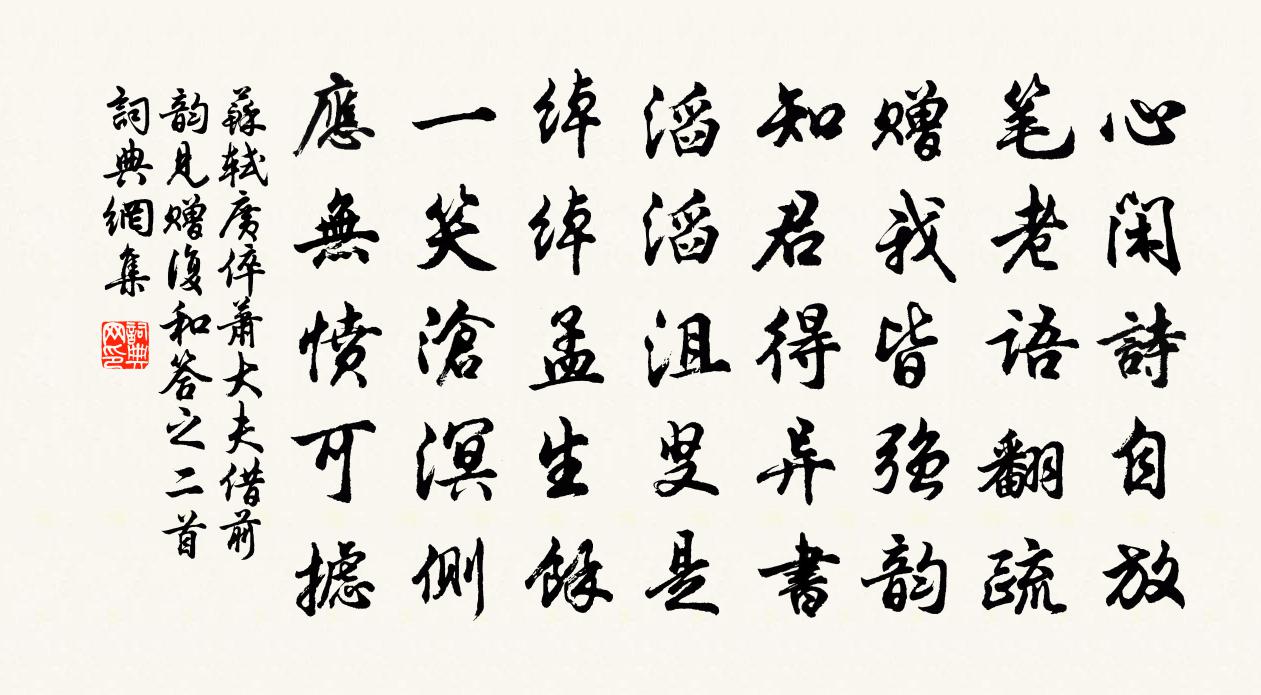 心闲詩自放
笔老語翻疏
赠我皆强韵
知君得异書
滔滔沮叟是
綽綽孟生餘
一笑滄溟側
應無愤可攄
蘇軾虔倅蕭大夫借前
韵見赠復和答之二首
詞典網集
詞典网印